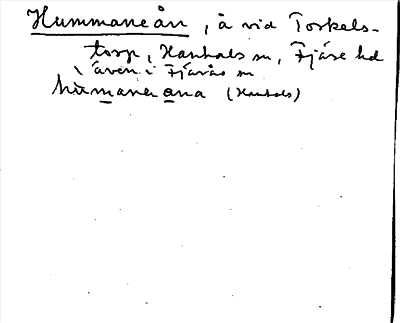 Hummaneån, å vid Torkels-
torp, Hanhals sn, Fjäre hd
även i Fjärås sn
hùmaner ana (Hanhals)